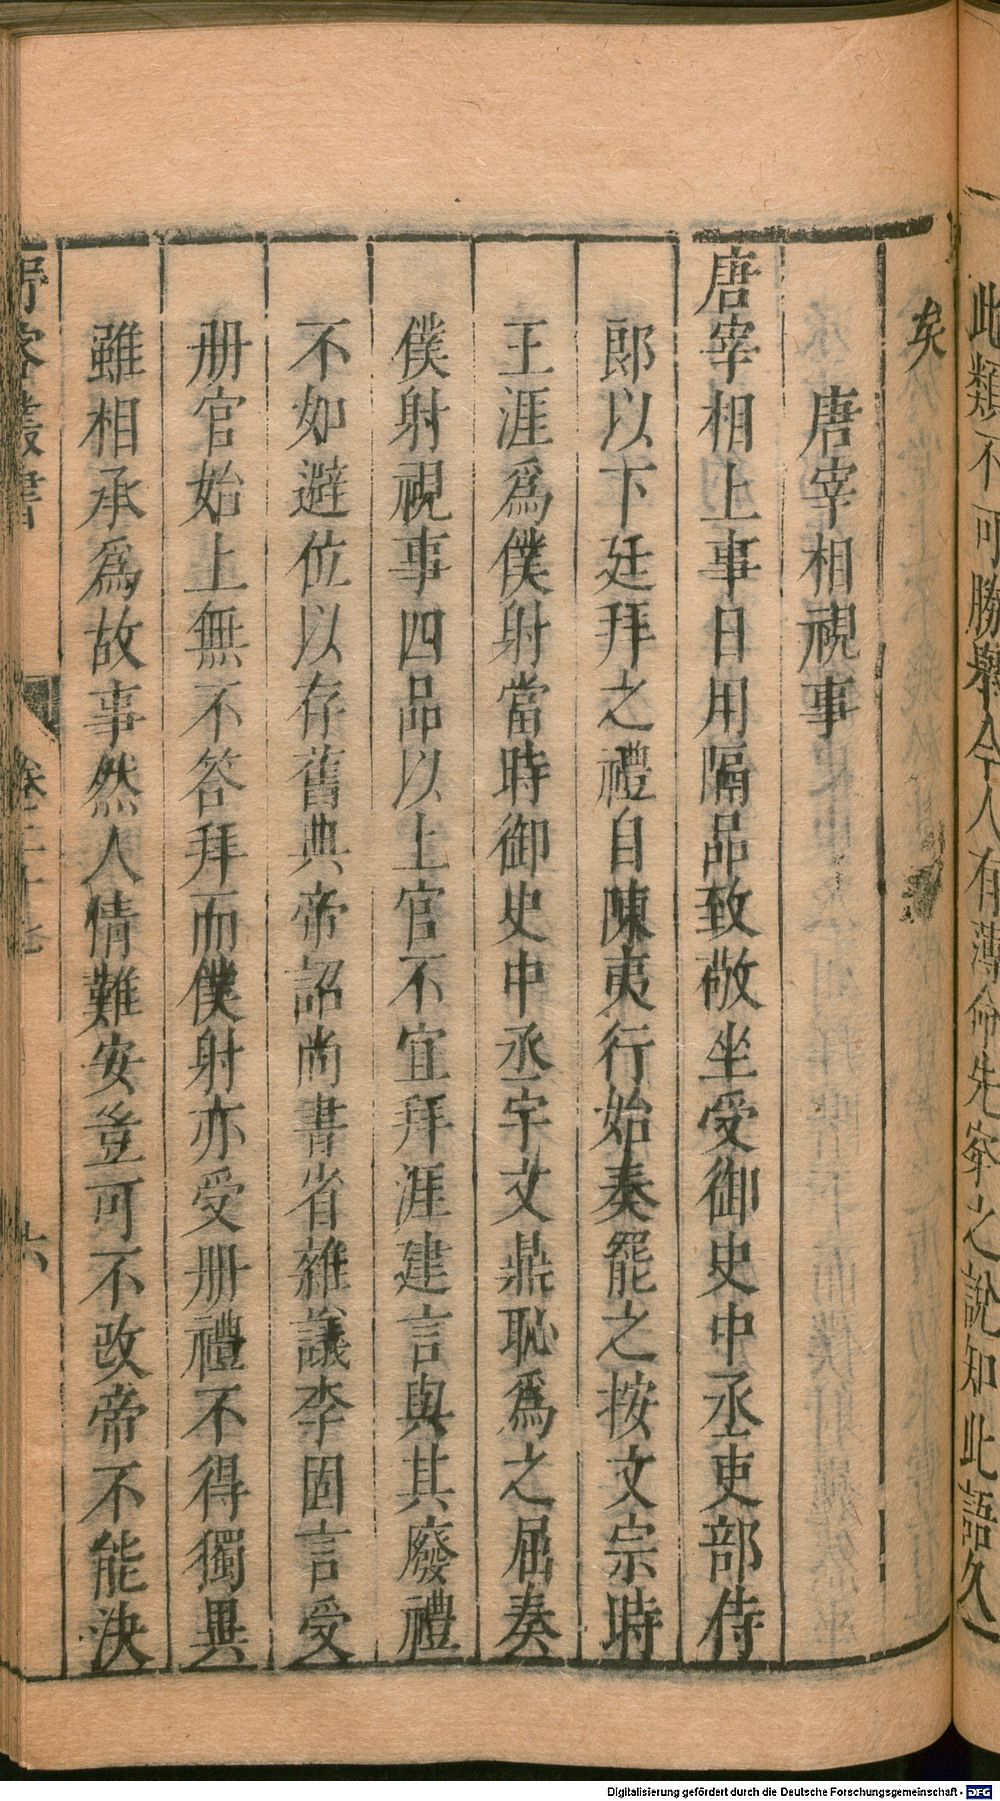 此類不可勝舉今人有薄命先窮之說知此語久
矣
唐宰相視事
唐宰相上事日用隔品致敬坐受御史中丞吏部侍
郎以下廷拜之禮自陳夷行始奏罷之按文宗時
王涯爲僕射當時御史中丞宇文鼎恥爲之屈奏
僕射視事四品以上官不宜拜涯建言與其廢禮
不如避位以存舊典帝詔尚書省雜議李固言受
册官始上無不答拜而僕射亦受册禮不得獨異
雖相承爲故事然人情難安豈可不改帝不能決
野客叢書
卷二十七
六
Digitalisierung gefördert durch die Deutsche Forschungsgemeinschaft - DFG